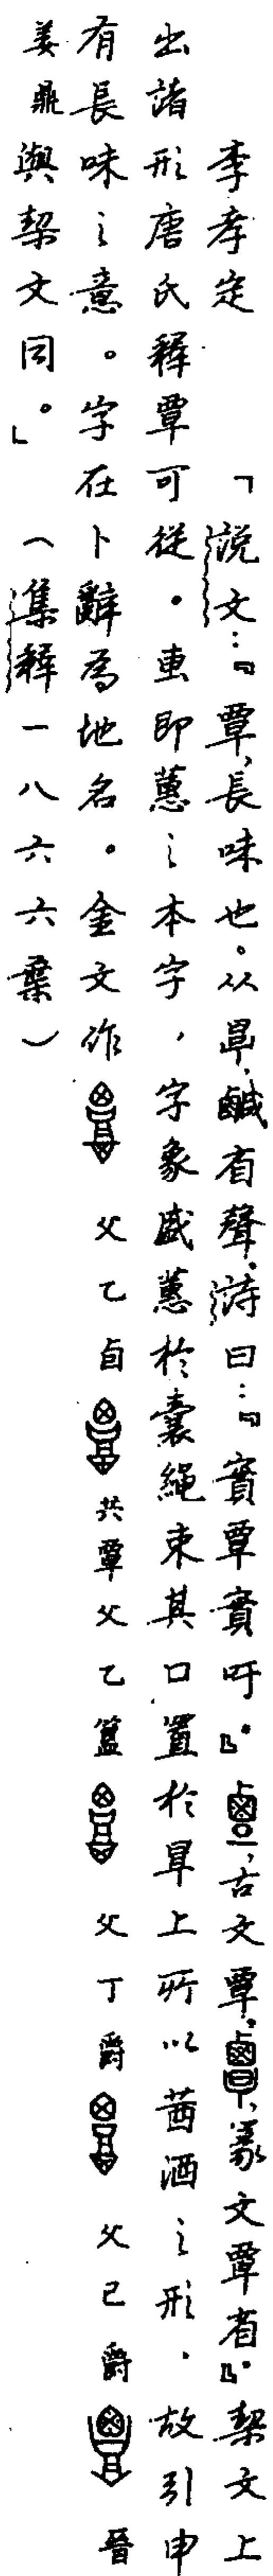 李孝定　「說文：『覃，長味也。从㫗，鹹省聲。詩曰：『實覃實吁。』，古文覃。，篆文覃省。』契文上
出諸形唐氏釋覃可從。㯥即蕙之本字，字象盛蕙於囊繩束其口置於㫗上所以莤酒之形．故引申
有長味之意。字在卜辭為地名。金文作　父乙卣　共覃父乙簋　父丁爵　父己爵　晉
姜鼎與契文同。」（集釋一八六六葉）